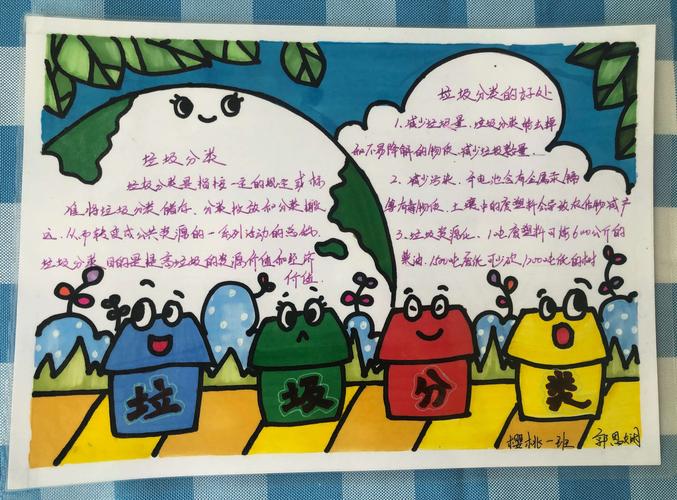 垃圾分类
垃圾分类是指按一定的规定或标
准将垃圾分类储存、分类投放和分类搬
运，从而转变成公共资源的一系列活动的总称。
垃圾分类目的是提高垃圾的资源价值和经济
价值
垃圾分类的好处
1、减少垃圾量、垃圾分类能去掉
和不易降解的物质，减少垃圾数量、
2、减少污染、干电池含有金属汞、镉
等有毒物质、土壤中的废塑料会导致农作物减产
3、垃圾资源化、1吨废塑料可炼600公斤的
柴油、1500吨废纸可少砍1200吨纸的树
垃 圾 分 类
樱桃一班 郭恩